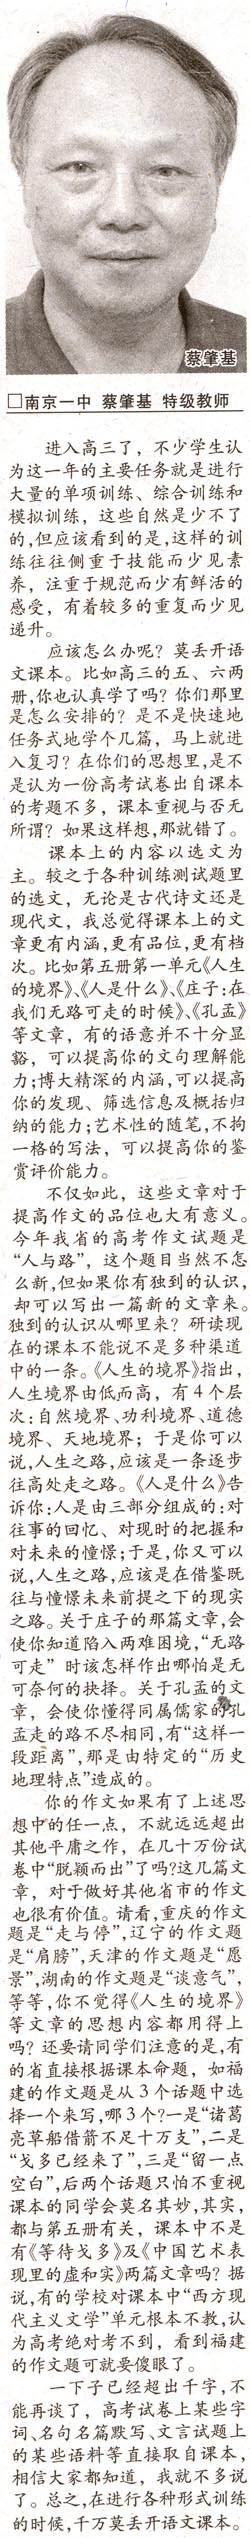 蔡肇基
□南京一中 蔡肇基 特级教师
进入高三了，不少学生认
为这一年的主要任务就是进行
大量的单项训练、综合训练和
模拟训练，这些自然是少不了
的，但应该看到的是，这样的训
练往往侧重于技能而少见素
养，注重于规范而少有鲜活的
感受，有着较多的重复而少见
递升。
应该怎么办呢？莫丢开语
文课本。比如高三的五、六两
册，你也认真学了吗？你们那里
是怎么安排的？是不是快速地
任务式地学个几篇，马上就进
入复习？在你们的思想里，是不
是认为一份高考试卷出自课本
的考题不多，课本重视与否无
所谓？如果这样想，那就错了。
课本上的内容以选文为
主。较之于各种训练测试题里
的选文，无论是古代诗文还是
现代文，我总觉得课本上的文
章更有内涵，更有品位，更有档
次。比如第五册第一单元《人生
的境界》、《人是什么》、《庄子：在
我们无路可走的时候》、《孔孟》
等文章，有的语意并不十分显
豁，可以提高你的文句理解能
力；博大精深的内涵，可以提高
你的发现、筛选信息及概括归
纳的能力；艺术性的随笔，不拘
一格的写法，可以提高你的鉴
赏评价能力。
不仅如此，这些文章对于
提高作文的品位也大有意义。
今年我省的高考作文试题是
“人与路”，这个题目当然不怎
么新，但如果你有独到的认识，
却可以写出一篇新的文章来。
独到的认识从哪里来？研读现
在的课本不能说不是多种渠道
中的一条。《人生的境界》指出，
人生境界由低而高，有4个层
次：自然境界、功利境界、道德
境界、天地境界；于是你可以
说，人生之路，应该是一条逐步
往高处走之路。《人是什么》告
诉你：人是由三部分组成的：对
往事的回忆、对现时的把握和
对未来的憧憬；于是，你又可以
说，人生之路，应该是在借鉴既
往与憧憬未来前提之下的现实
之路。关于庄子的那篇文章，会
使你知道陷入两难困境，“无路
可走”时该怎样作出哪怕是无
可奈何的抉择。关于孔孟的文
章，会使你懂得同属儒家的孔
孟走的路不尽相同，有“这样一
段距离”，那是由特定的“历史
地理特点”造成的。
你的作文如果有了上述思
想中的任一点，不就远远超出
其他平庸之作，在几十万份试
卷中“脱颖而出”了吗？这几篇文
章，对于做好其他省市的作文
也很有价值。请看，重庆的作文
题是“走与停”，辽宁的作文题
是“肩膀”，天津的作文题是“愿
景”，湖南的作文题是“谈意气”，
等等，你不觉得《人生的境界》
等文章的思想内容都用得上
吗？还要请同学们注意的是，有
的省直接根据课本命题，如福
建的作文题是从3个话题中选
择一个来写，哪3个？一是“诸葛
亮草船借箭不足十万支”，二是
“戈多已经来了”，三是“留一点
空白”，后两个话题只怕不重视
课本的同学会莫名其妙，其实，
都与第五册有关，课本中不是
有《等待戈多》及《中国艺术表
现里的虚和实》两篇文章吗？据
说，有的学校对课本中“西方现
代主义文学”单元根本不教，认
为高考绝对考不到，看到福建
的作文题可就要傻眼了。
一下子已经超出千字，不
能再谈了，高考试卷上某些字
词、名句名篇默写、文言试题上
的某些语料等直接取自课本，
相信大家都知道，我就不多说
了。总之，在进行各种形式训练
的时候，千万莫丢开语文课本。